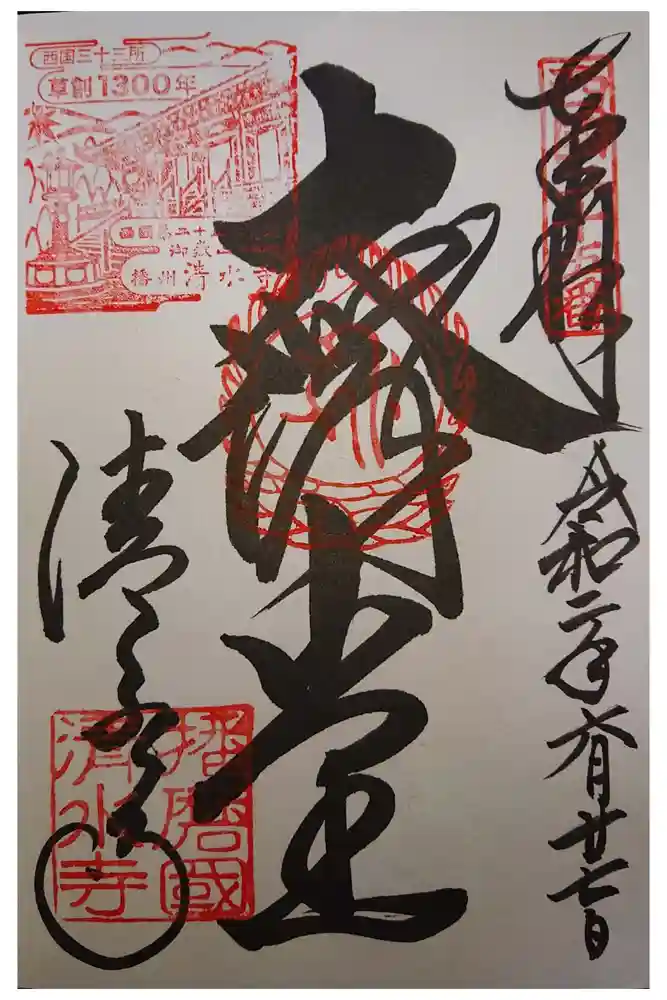 奉拝
西国廿五番
令和二年六月廿七日
大講堂
西国三十三所
草創1300年
播州 清水寺
清水寺
播磨國
清水寺